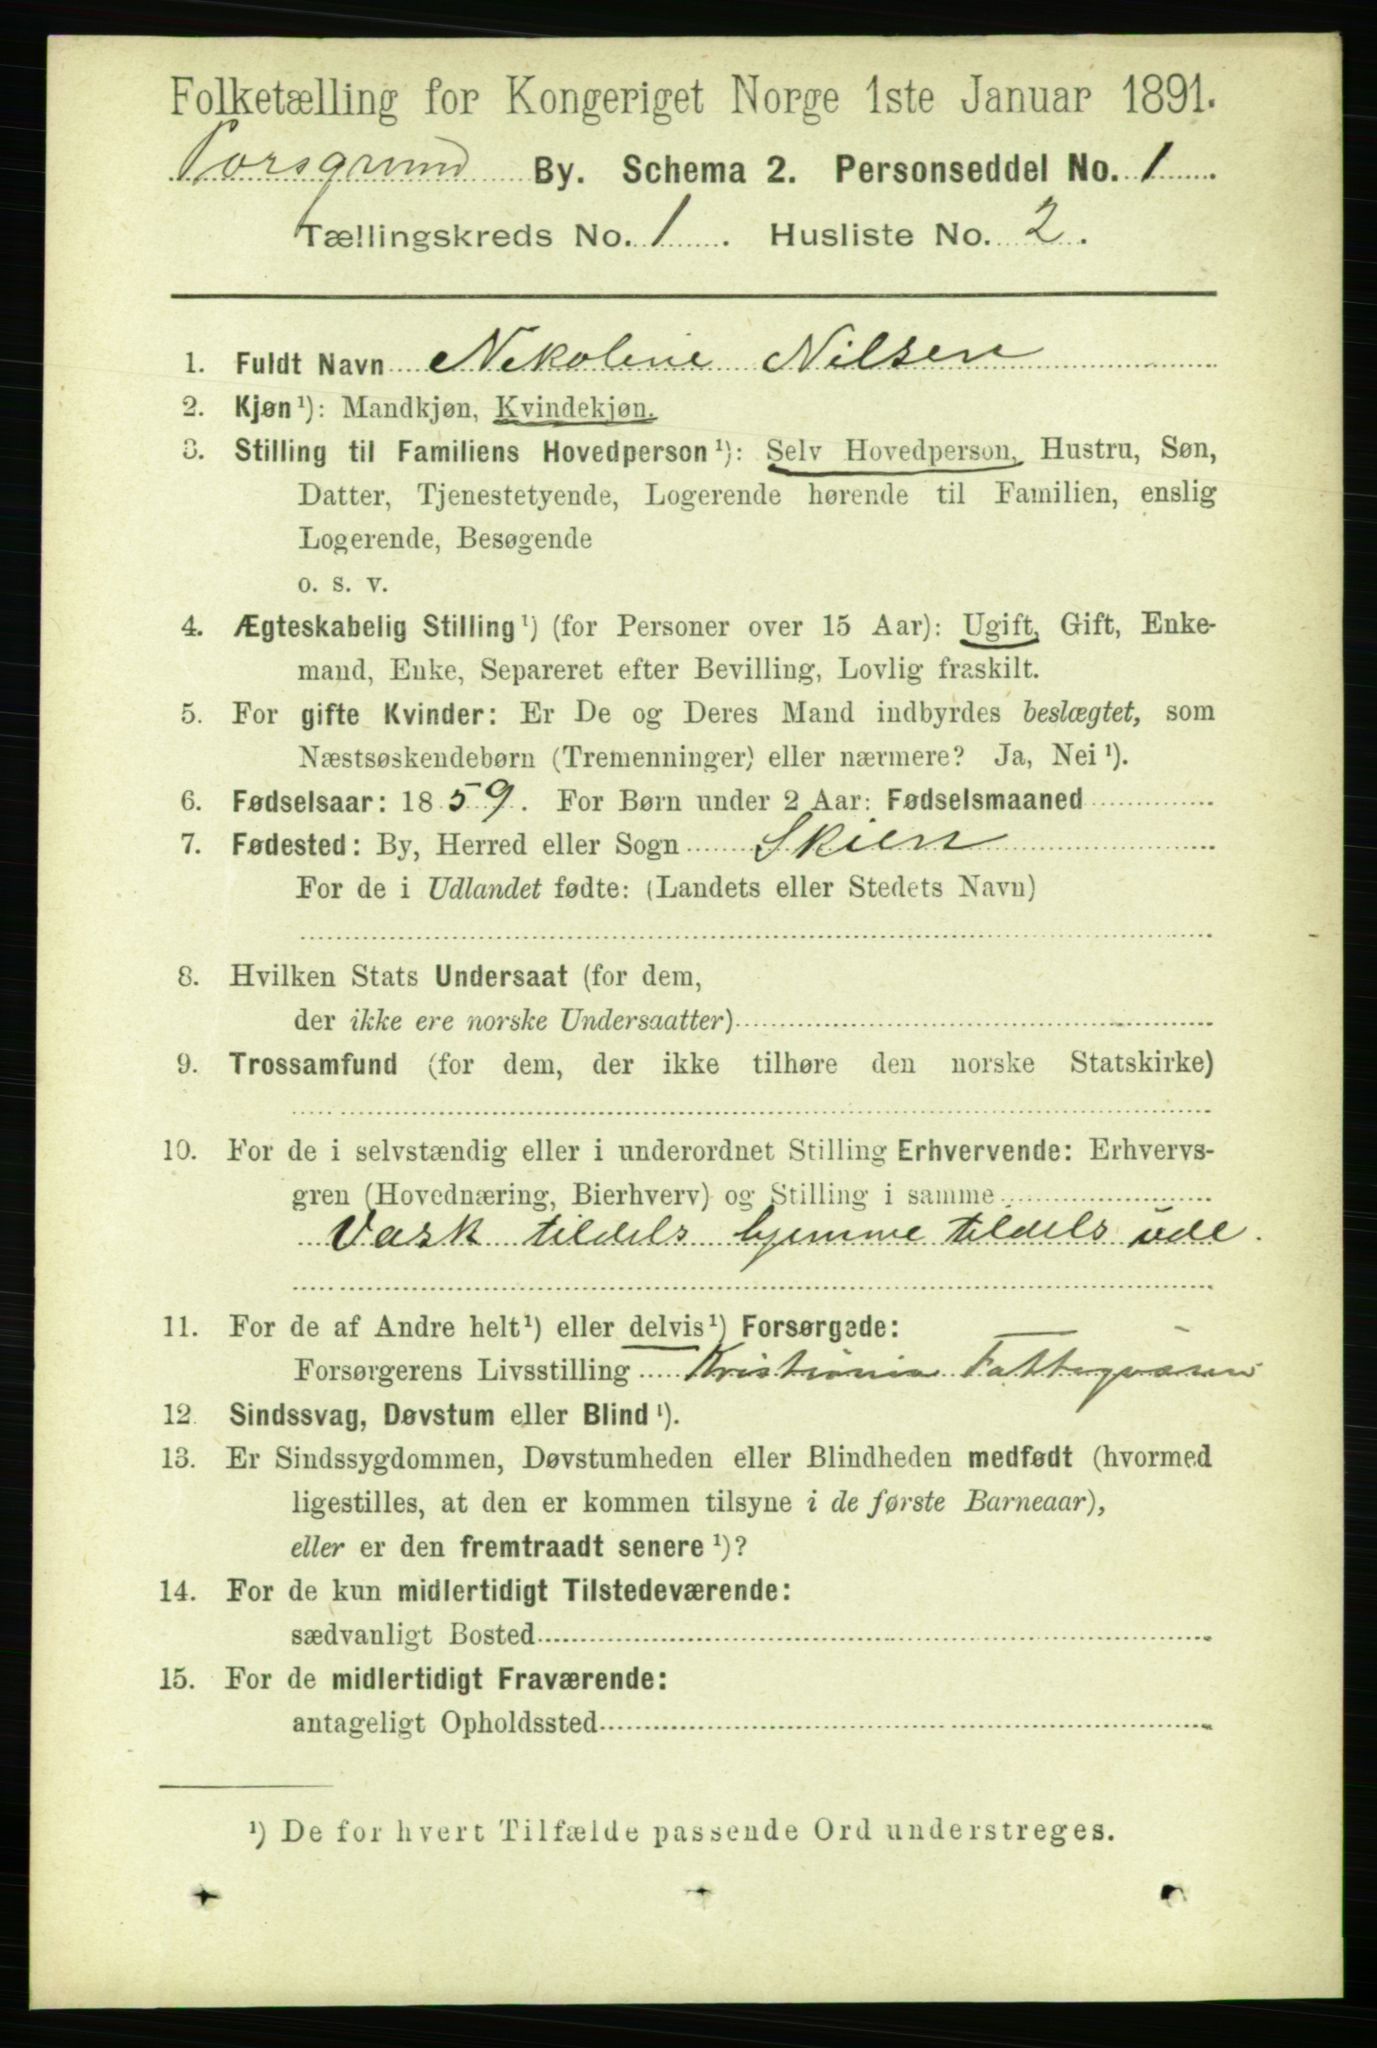 Folketælling for Kongeriget Norge 1ste Januar 1891.
Porsgrund By. Schema 2. Personseddel No. 1
Tællingskreds No. 1. Husliste No. 2.
1. Fuldt Navn Nekoline Nilsen
2. Kjøn¹): Mandkjøn, Kvindekjøn.
3. Stilling til Familiens Hovedperson¹): Selv Hovedperson, Hustru, Søn,
Datter, Tjenestetyende, Logerende hørende til Familien, enslig
Logerende, Besøgende
o. s. v.
4. Ægteskabelig Stilling¹) (for Personer over 15 Aar): Ugift, Gift, Enke-
mand, Enke, Separeret efter Bevilling, Lovlig fraskilt.
5. For gifte Kvinder: Er De og Deres Mand indbyrdes beslægtet, som
Næstsøskendebørn (Tremenninger) eller nærmere? Ja, Nei¹).
6. Fødselsaar: 1859. For Børn under 2 Aar: Fødselsmaaned
7. Fødested: By, Herred eller Sogn Skien
For de i Udlandet fødte: (Landets eller Stedets Navn)
8. Hvilken Stats Undersaat (for dem,
der ikke ere norske Undersaatter)
9. Trossamfund (for dem, der ikke tilhøre den norske Statskirke)
10. For de i selvstændig eller i underordnet Stilling Erhvervende: Erhvervs-
gren (Hovednæring, Bierhverv) og Stilling i samme
Vask tildels hjemme tildels ude.
11. For de af Andre helt¹) eller delvis¹) Forsørgede:
Forsørgerens Livsstilling Kristiania Fattigvæsen
12. Sindssvag, Døvstum eller Blind¹).
13. Er Sindssygdommen, Døvstumheden eller Blindheden medfødt (hvormed
ligestilles, at den er kommen tilsyne i de første Barneaar),
eller er den fremtraadt senere¹)?
14. For de kun midlertidigt Tilstedeværende:
sædvanligt Bosted
15. For de midlertidigt Fraværende:
antageligt Opholdssted
¹) De for hvert Tilfælde passende Ord understreges.